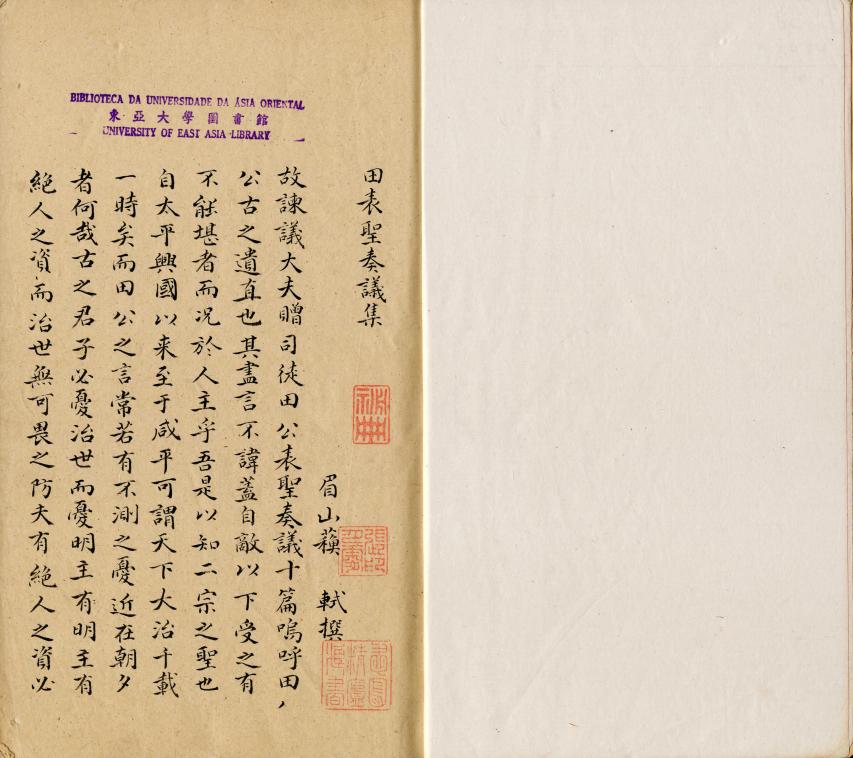 BIBLIOTECA DA UNIVERSIDADE DA ÁSIA ORIENTAL
東亞大學圖書館
UNIVERSITY OF EAST ASIA LIBRARY
田表聖奏議集
眉山蘇 軾撰
故諫議大夫贈司徒田公表聖奏議十篇嗚呼田
公古之遺直也其盡言不諱蓋自敵以下受之有
不能堪者而况於人主乎吾是以知二宗之聖也
自太平興國以来至于咸平可謂天下大治千載
一時矣而田公之言常若有不測之憂近在朝夕
者何哉古之君子必憂治世而憂明主有明主有
絶人之資而治世無可畏之防夫有絶人之資必